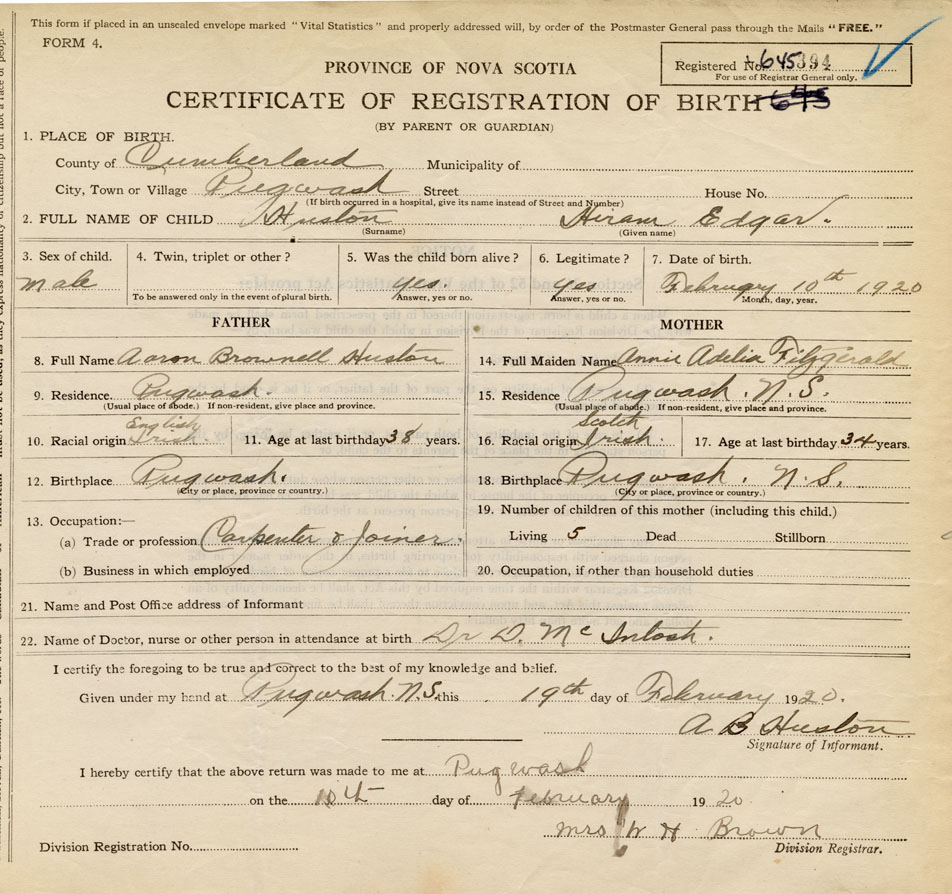 This form if placed in an unsealed envelope marked "Vital Statistics" and properly addressed will, by order of the Postmaster General pass through the Mails "FREE."
FORM 4.
Registered No. 645394
For use of Registrar General only.
PROVINCE OF NOVA SCOTIA
CERTIFICATE OF REGISTRATION OF BIRTH 645
(BY PARENT OR GUARDIAN)
1. PLACE OF BIRTH.
County of Cumberland Municipality of
City, Town or Village Pugwash Street House No.
(If birth occurred in a hospital, give its name instead of Street and Number)
2. FULL NAME OF CHILD Huston Hiram Edgar.
(Surname) (Given name)
3. Sex of child. 4. Twin, triplet or other? 5. Was the child born alive? 6. Legitimate? 7. Date of birth.
male yes. yes February 10th 1920
To be answered only in the event of plural birth. Answer, yes or no. Answer, yes or no. Month, day, year.
FATHER MOTHER
8. Full Name Aaron Brownell Huston 14. Full Maiden Name Annie Adelia Fitzgerald
9. Residence. Pugwash. 15. Residence Pugwash. N.S.
(Usual place of abode.) If non-resident, give place and province. (Usual place of abode.) If non-resident, give place and province.
English Scotch
10. Racial origin Irish. 11. Age at last birthday 38 years. 16. Racial origin Irish. 17. Age at last birthday 34 years.
12. Birthplace Pugwash. 18. Birthplace Pugwash. N.S.
(City or place, province or country.) (City or place, province or country.)
13. Occupation:— 19. Number of children of this mother (including this child.)
(a) Trade or profession Carpenter & Joiner. Living 5 Dead Stillborn
(b) Business in which employed 20. Occupation, if other than household duties
21. Name and Post Office address of Informant
22. Name of Doctor, nurse or other person in attendance at birth Dr D. McIntosh.
I certify the foregoing to be true and correct to the best of my knowledge and belief.
Given under my hand at Pugwash N.S. this 19th day of February 1920.
A B Huston
Signature of Informant.
I hereby certify that the above return was made to me at Pugwash
on the day of February 1920
Mrs W H Brown
Division Registration No. Division Registrar.